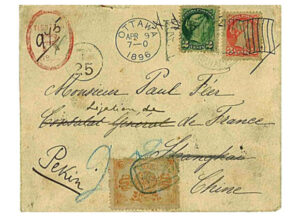 975
25
OTTAWA
AP 9
7-0
1896
2
Monsieur Paul Féer
Légation de
Consulat Général de France
Shanghai
Pekin
Chine